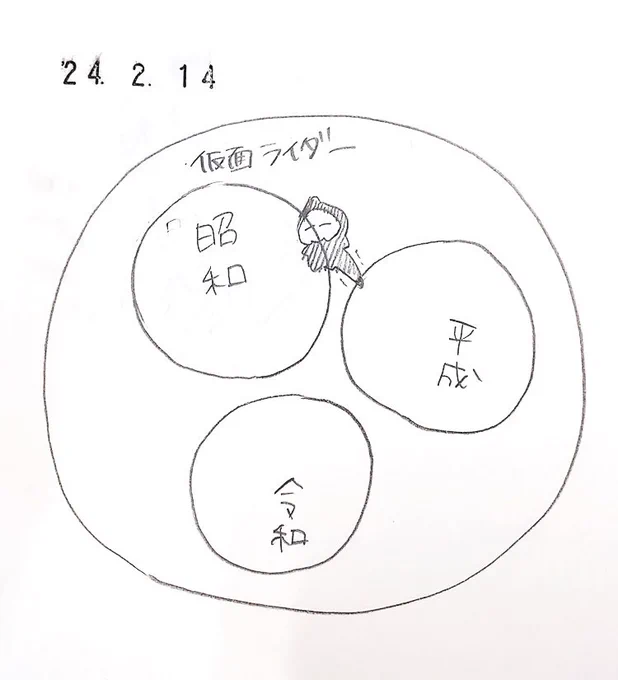 '24. 2. 14
仮面ライダー
昭和
平成
令和